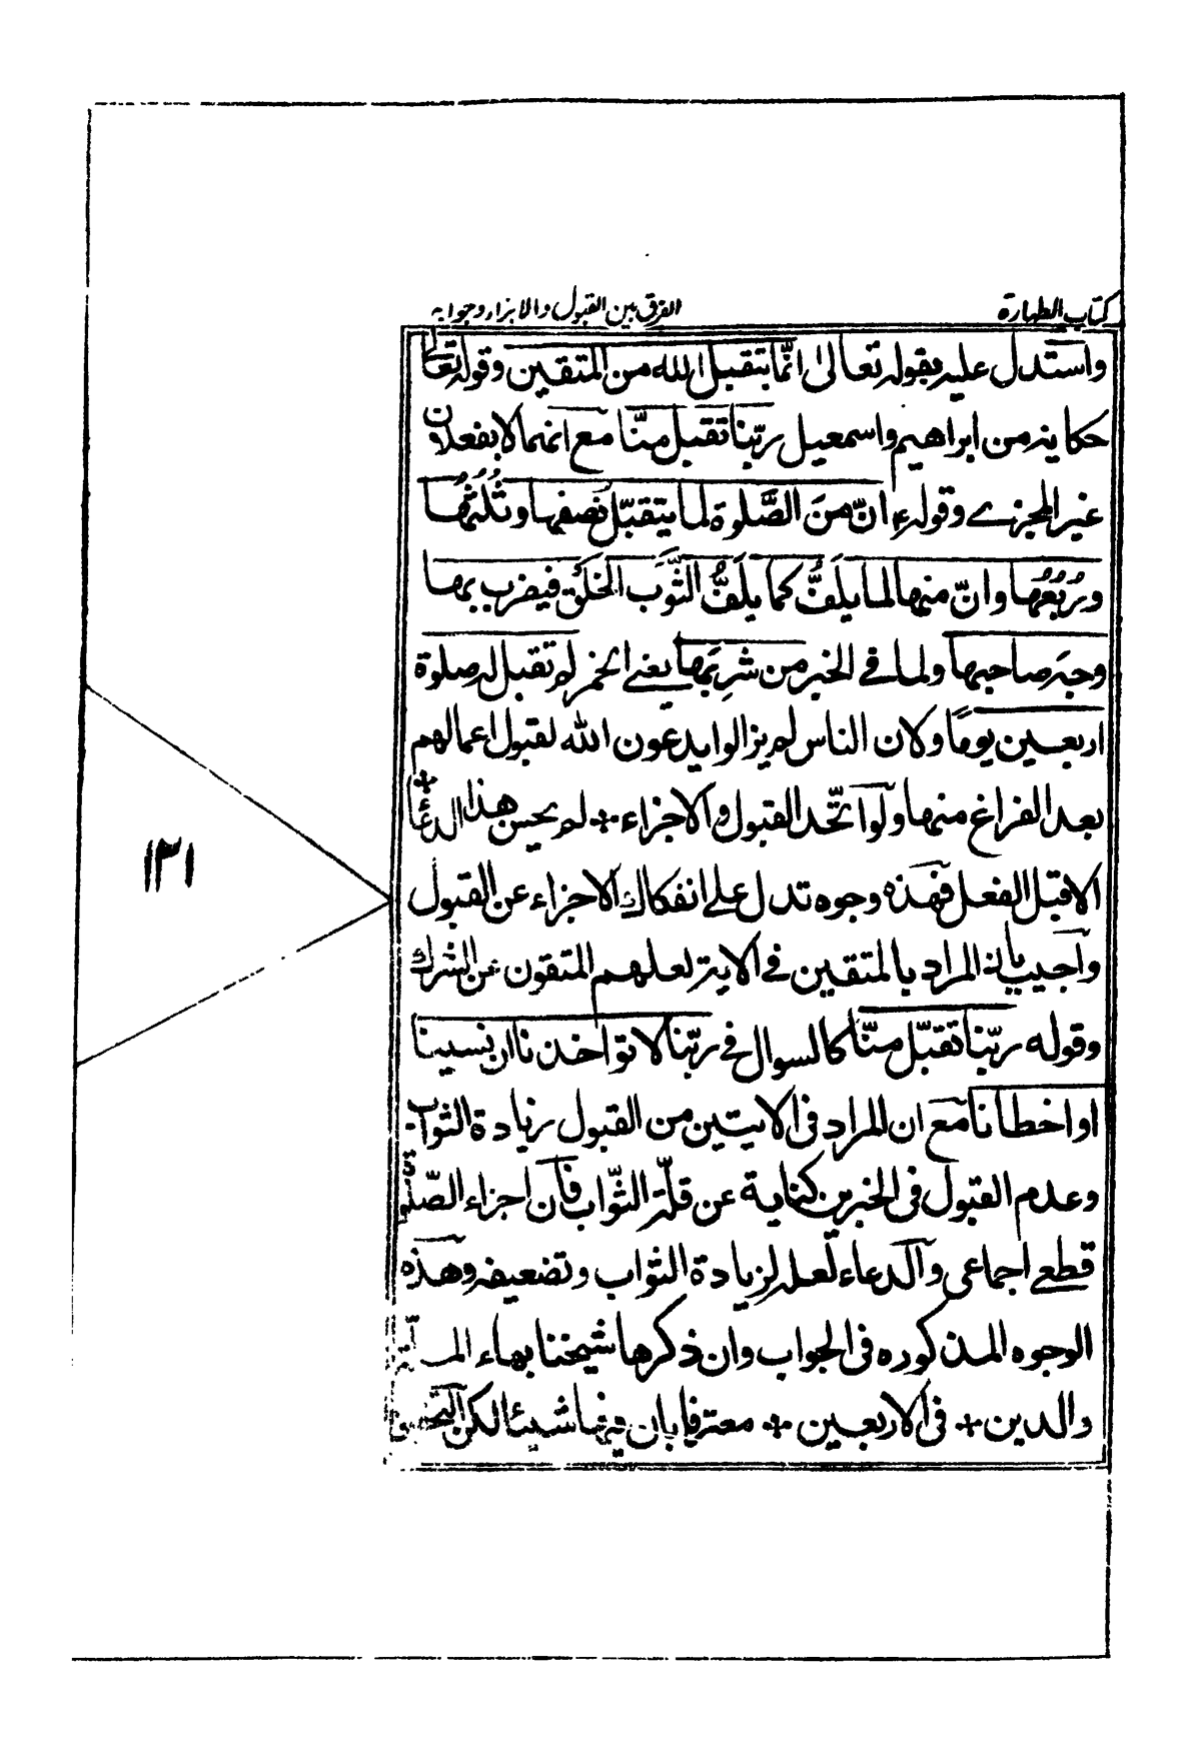 كتاب الطهارة
الفرق بين القبول والابزاء وجوابه
واستدل عليه بقوله تعالى انّما يتقبل الله من المتقين وقوله تعالى
حكاية من ابراهيم واسمعيل ربّنا تقبل منّا مع انهما لا يفعلان
غير المجزے وقوله ع انّ منَ الصَّلوة لما يتقبّل نصفها وثُلُثُها
ورُبُعُها وانّ منها لما يلَفُّ كما يلَفُّ الثَّوب الخلَق فيضرب بها
وجه صاحبها ولما في الخبر من شرِبَها يعنى الخمر لم تقبل له صلوة
اربعين يومًا ولان الناس لم يزالوا يدعون الله لقبول اعمالهم
بعد الفراغ منها ولو اتّحد القبول والاجزاء لم يحسن هذا الدعاء
الا قبل الفعل فهذه وجوه تدل على انفكاك الاجزاء عن القبول
واجيب بان المراد بالمتقين في الاية لعلهم المتقون عن الشرك
وقوله ربّنا تقبّل منّا كالسوال في ربّنا لا تواخذنا ان نسينا
او اخطانا مع ان المراد في الايتين من القبول زيادة الثواب
وعدم القبول في الخبرين كناية عن قلّة الثّواب فان اجزاء الصّلوة
قطعے اجماعى والدعاء لعله لزيادة الثواب وتضعيفه وهذه
الوجوه المذكوره في الجواب وان ذكرها شيخنا بهاء الملّة
والدين في الاربعين معترفا بان فيها شيئا لكن التحقيق
١٣١